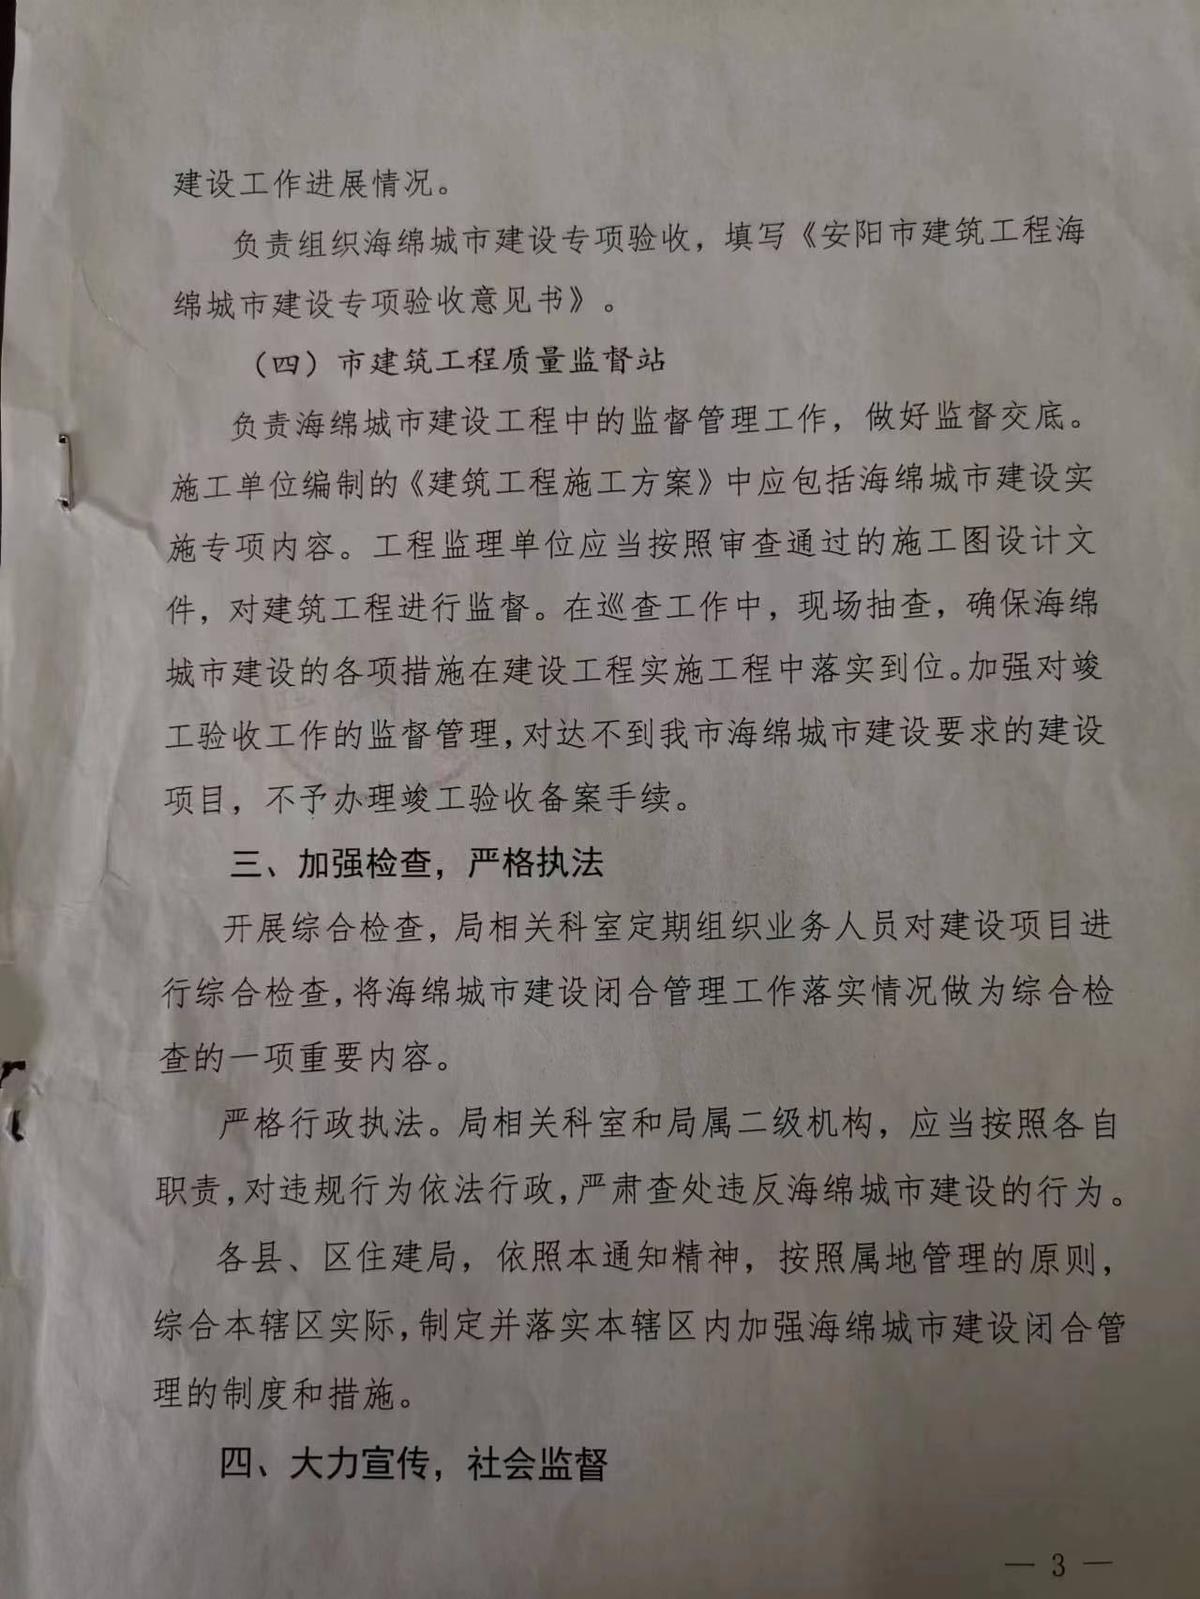 建设工作进展情况。
负责组织海绵城市建设专项验收，填写《安阳市建筑工程海
绵城市建设专项验收意见书》。
（四）市建筑工程质量监督站
负责海绵城市建设工程中的监督管理工作，做好监督交底。
施工单位编制的《建筑工程施工方案》中应包括海绵城市建设实
施专项内容。工程监理单位应当按照审查通过的施工图设计文
件，对建筑工程进行监督。在巡查工作中，现场抽查，确保海绵
城市建设的各项措施在建设工程实施工程中落实到位。加强对竣
工验收工作的监督管理，对达不到我市海绵城市建设要求的建设
项目，不予办理竣工验收备案手续。
三、加强检查，严格执法
开展综合检查，局相关科室定期组织业务人员对建设项目进
行综合检查，将海绵城市建设闭合管理工作落实情况做为综合检
查的一项重要内容。
严格行政执法。局相关科室和局属二级机构，应当按照各自
职责，对违规行为依法行政，严肃查处违反海绵城市建设的行为。
各县、区住建局，依照本通知精神，按照属地管理的原则，
综合本辖区实际，制定并落实本辖区内加强海绵城市建设闭合管
理的制度和措施。
四、大力宣传，社会监督
— 3 —